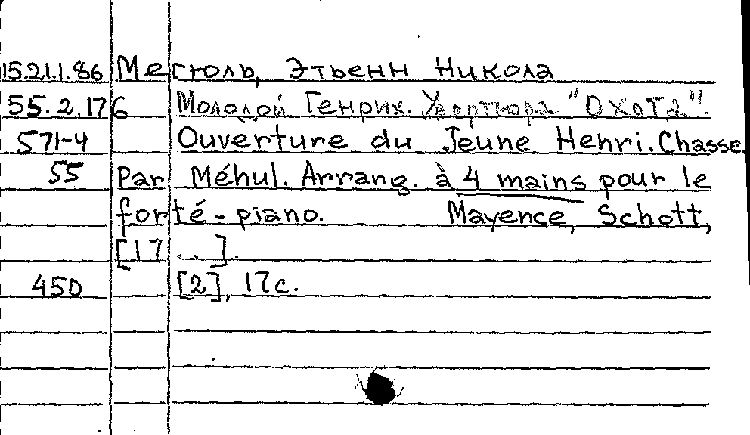 15.21.1.86 Мегюль, Этьенн Никола
55.2.176 Молодой Генрих. Увертюра "Охота".
571-4 Ouverture du Jeune Henri. Chasse.
55 Par Méhul. Arrang. à 4 mains pour le
forté-piano. Mayence, Schott,
[17 . .]
450 [2], 17с.